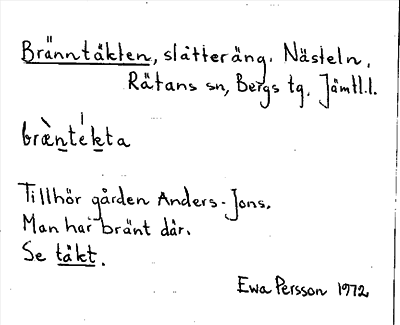 Bränntäkten, slåtteräng. Nästeln,
Rätans sn, Bergs tg, Jämtl.l.
bræ̀ntékta
Tillhör gården Anders-Jons.
Man har bränt där.
Se täkt.
Ewa Persson 1972